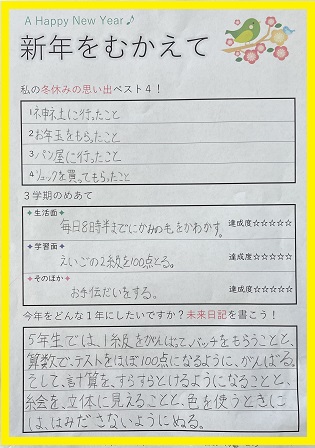 A Happy New Year♪
新年をむかえて
私の冬休みの思い出ベスト4！
1 神社に行ったこと
2 お年玉をもらったこと
3 パン屋に行ったこと
4 リュックを買ってもらったこと
3学期のめあて
◆生活面◆
毎日8時半までにかみの毛をかわかす。 達成度☆☆☆☆☆
◆学習面◆
えいごの2級を100点とる。 達成度☆☆☆☆☆
◆そのほか◆
お手伝だいをする。 達成度☆☆☆☆☆
今年をどんな1年にしたいですか？未来日記を書こう！
5年生では、1級をがんばって、バッチをもらうことと、
算数で、テストをほぼ100点になるように、がんばる。
そして、計算を、すらすらとけるようになることと、
絵を、立体に見えることと、色を使うときに
は、はみださないようにぬる。